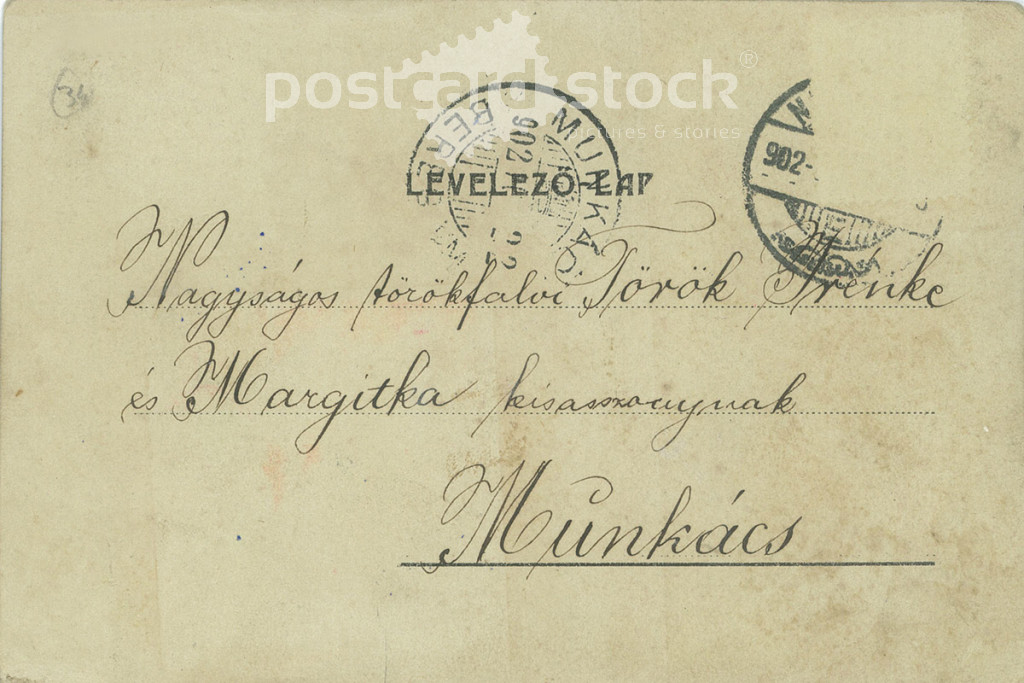 34
postcard stock®
pictures & stories
MUNKÁCS
BEREG
902
22
LEVELEZŐ-LAP
902-
Nagyságos törökfalvi Török Irenke
és Margitka kisasszonynak
Munkács